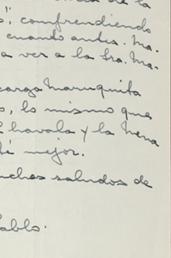 de la
comprendiendo
cuando antes. Ma.
a ver a la Sra. Ma.
carga Maruquita
lo mismo que
y la Nena
mejor.
saludos de
Pablo.